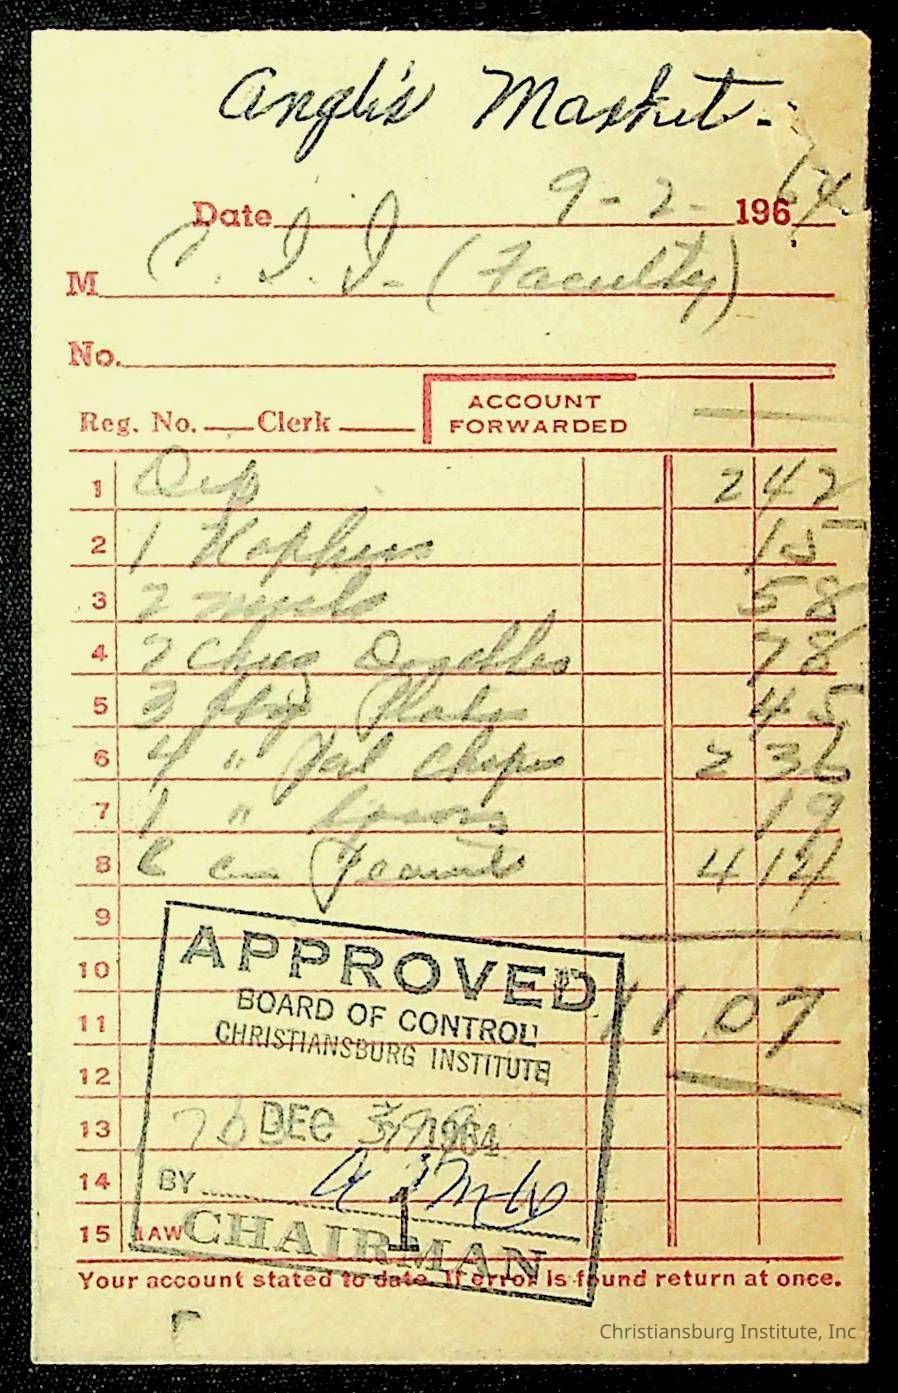 Angle's Market.
Date 9-2- 1964
M C. I. I. (Faculty)
No.
Reg. No. Clerk ACCOUNT FORWARDED —
1 Dep 2 42
2 1 Napkins 15
3 2 58
4 2 Cheez Doodles 78
5 3 Pkg Plates 45
6 4 " Pot Chips 2 36
7 1 " Spoons 19
8 6 can Peanuts 4 14
9
10
11 11 07
12
13
14
15
APPROVED
BOARD OF CONTROL
CHRISTIANSBURG INSTITUTE
DEC 3 1964
BY
1
CHAIRMAN
Your account stated to date. If error is found return at once.
Christiansburg Institute, Inc